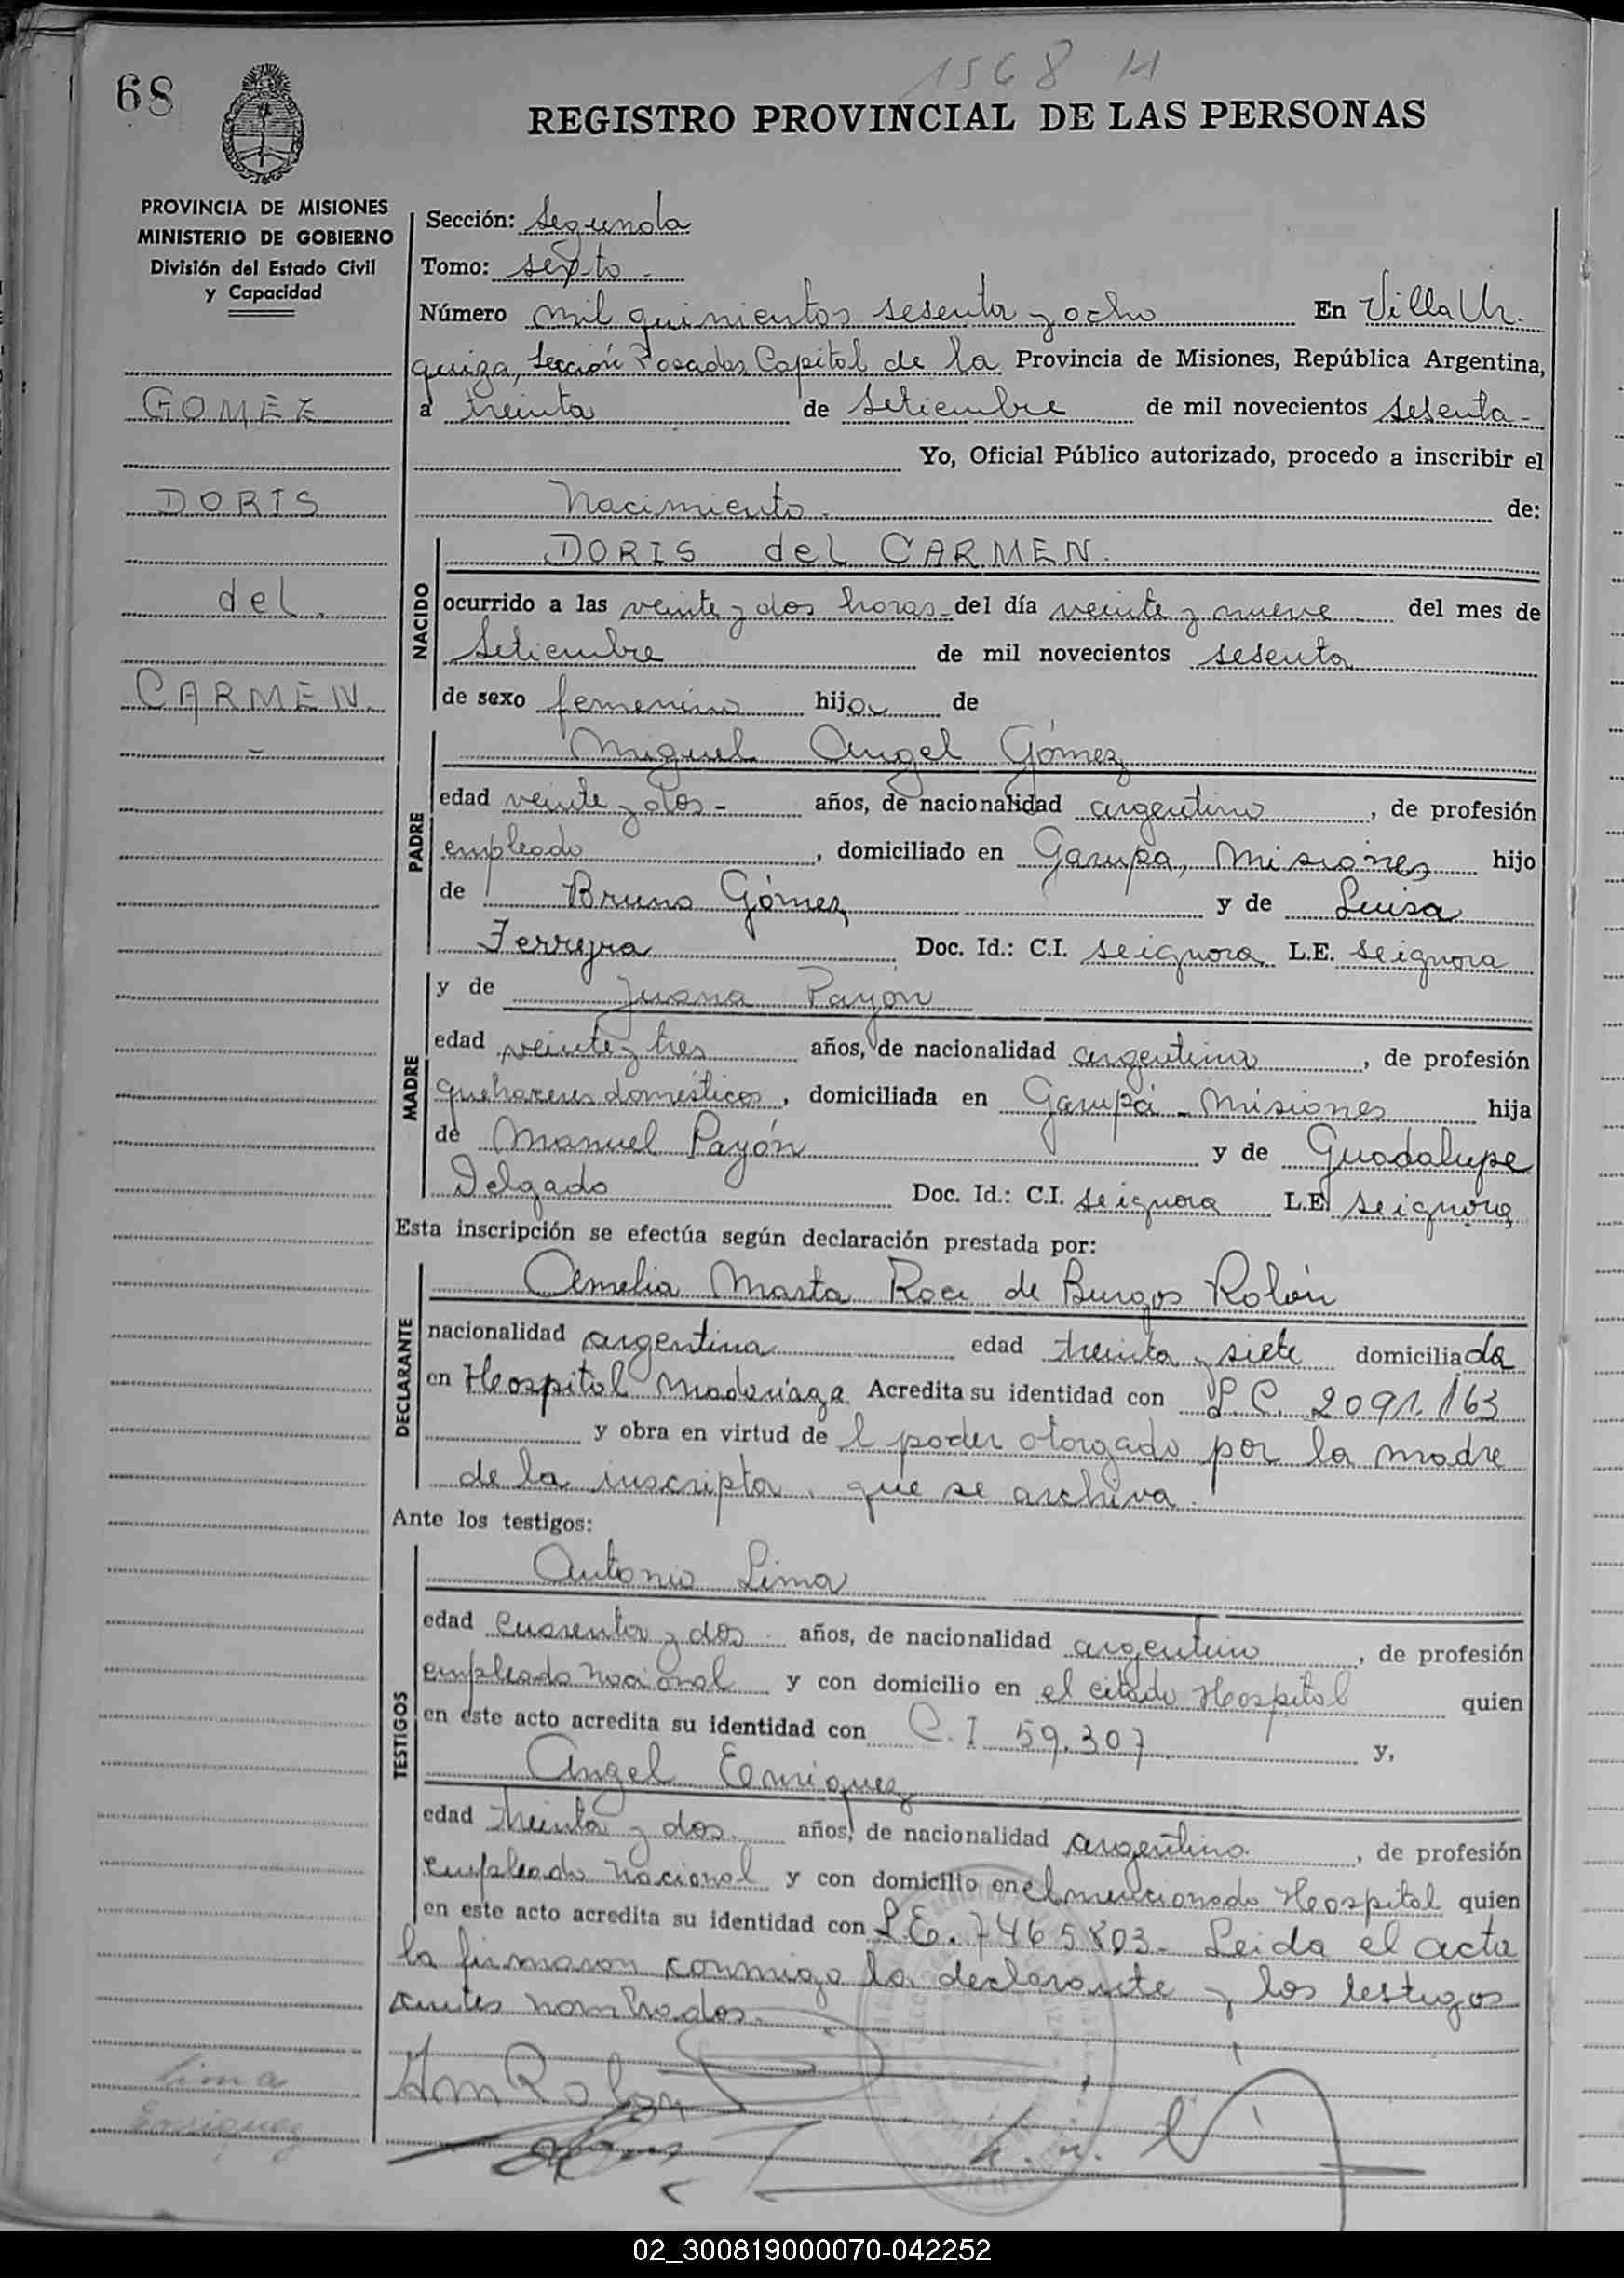 68
1568 H
REGISTRO PROVINCIAL DE LAS PERSONAS
PROVINCIA DE MISIONES
MINISTERIO DE GOBIERNO
División del Estado Civil
y Capacidad
GOMEZ
DORIS
del
CARMEN.
Sección: Segunda
Tomo: sexto -
Número mil quinientos sesenta y ocho En Villa Ur.
quiza, Sección Posadas Capital de la Provincia de Misiones, República Argentina,
a treinta de Setiembre de mil novecientos sesenta -
Yo, Oficial Público autorizado, procedo a inscribir el
Nacimiento - de:
NACIDO
DORIS del CARMEN.
ocurrido a las veinte y dos horas - del día veinte y nueve del mes de
Setiembre de mil novecientos sesenta
de sexo femenino hija de
PADRE
Miguel Angel Gómez
edad veinte y dos - años, de nacionalidad argentino, de profesión
empleado, domiciliado en Garupa, Misiones hijo
de Bruno Gómez y de Luisa
Ferreyra Doc. Id.: C.I. seignora L.E. seignora
MADRE
y de Juana Payón
edad veinte y tres años, de nacionalidad argentina, de profesión
quehaceres domésticos, domiciliada en Garupá - Misiones hija
de Manuel Payón y de Guadalupe
Delgado Doc. Id.: C.I. seignora L.E. seignora
Esta inscripción se efectúa según declaración prestada por:
DECLARANTE
Amelia Marta Roa de Burgos Rolón
nacionalidad argentina edad treinta y siete domiciliada
en Hospital Madariaga Acredita su identidad con L.C. 2091.163
y obra en virtud del poder otorgado por la madre
de la inscripta, que se archiva.
Ante los testigos:
TESTIGOS
Antonio Lima
edad cuarenta y dos años, de nacionalidad argentino, de profesión
empleado nacional y con domicilio en el citado Hospital quien
en este acto acredita su identidad con C.I 59.307 y,
Angel Enriquez
edad treinta y dos. años, de nacionalidad argentino, de profesión
empleado nacional y con domicilio en el mencionado Hospital quien
en este acto acredita su identidad con L.E. 7465803- Leida el acta
la firmaron conmigo la declarante y los testigos
antes nombrados.
Lima
Enriquez
AmRolon
02_300819000070-042252